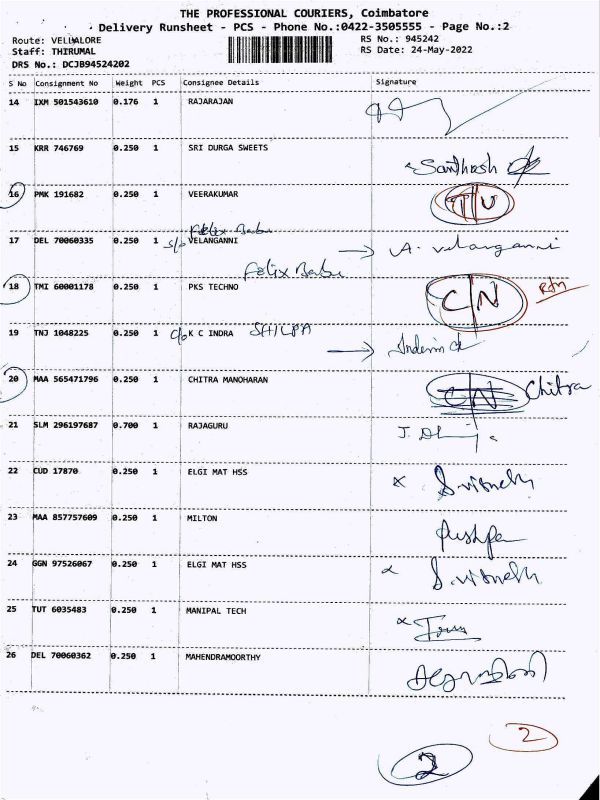 THE PROFESSIONAL COURIERS, Coimbatore
Delivery Runsheet - PCS - Phone No.:0422-3505555 - Page No.:2
Route: VELLALORE RS No.: 945242
Staff: THIRUMAL RS Date: 24-May-2022
DRS No.: DCJB94524202
S No Consignment No Weight PCS Consignee Details Signature
14 IXM 501543610 0.176 1 RAJARAJAN
15 KRR 746769 0.250 1 SRI DURGA SWEETS
Santhosh
16 PMK 191682 0.250 1 VEERAKUMAR
Felix Babu
17 DEL 70060335 0.250 1 s/o VELANGANNI A. Velanganni
Felix Babu
18 TMI 60001178 0.250 1 PKS TECHNO CN
19 TNJ 1048225 0.250 1 c/o K C INDRA SHILPA
20 MAA 565471796 0.250 1 CHITRA MANOHARAN CN Chitra
21 SLM 296197687 0.700 1 RAJAGURU
22 CUD 17870 0.250 1 ELGI MAT HSS
23 MAA 857757609 0.250 1 MILTON
Pushpa
24 GGN 97526067 0.250 1 ELGI MAT HSS
25 TUT 6035483 0.250 1 MANIPAL TECH
26 DEL 70060362 0.250 1 MAHENDRAMOORTHY
2
2